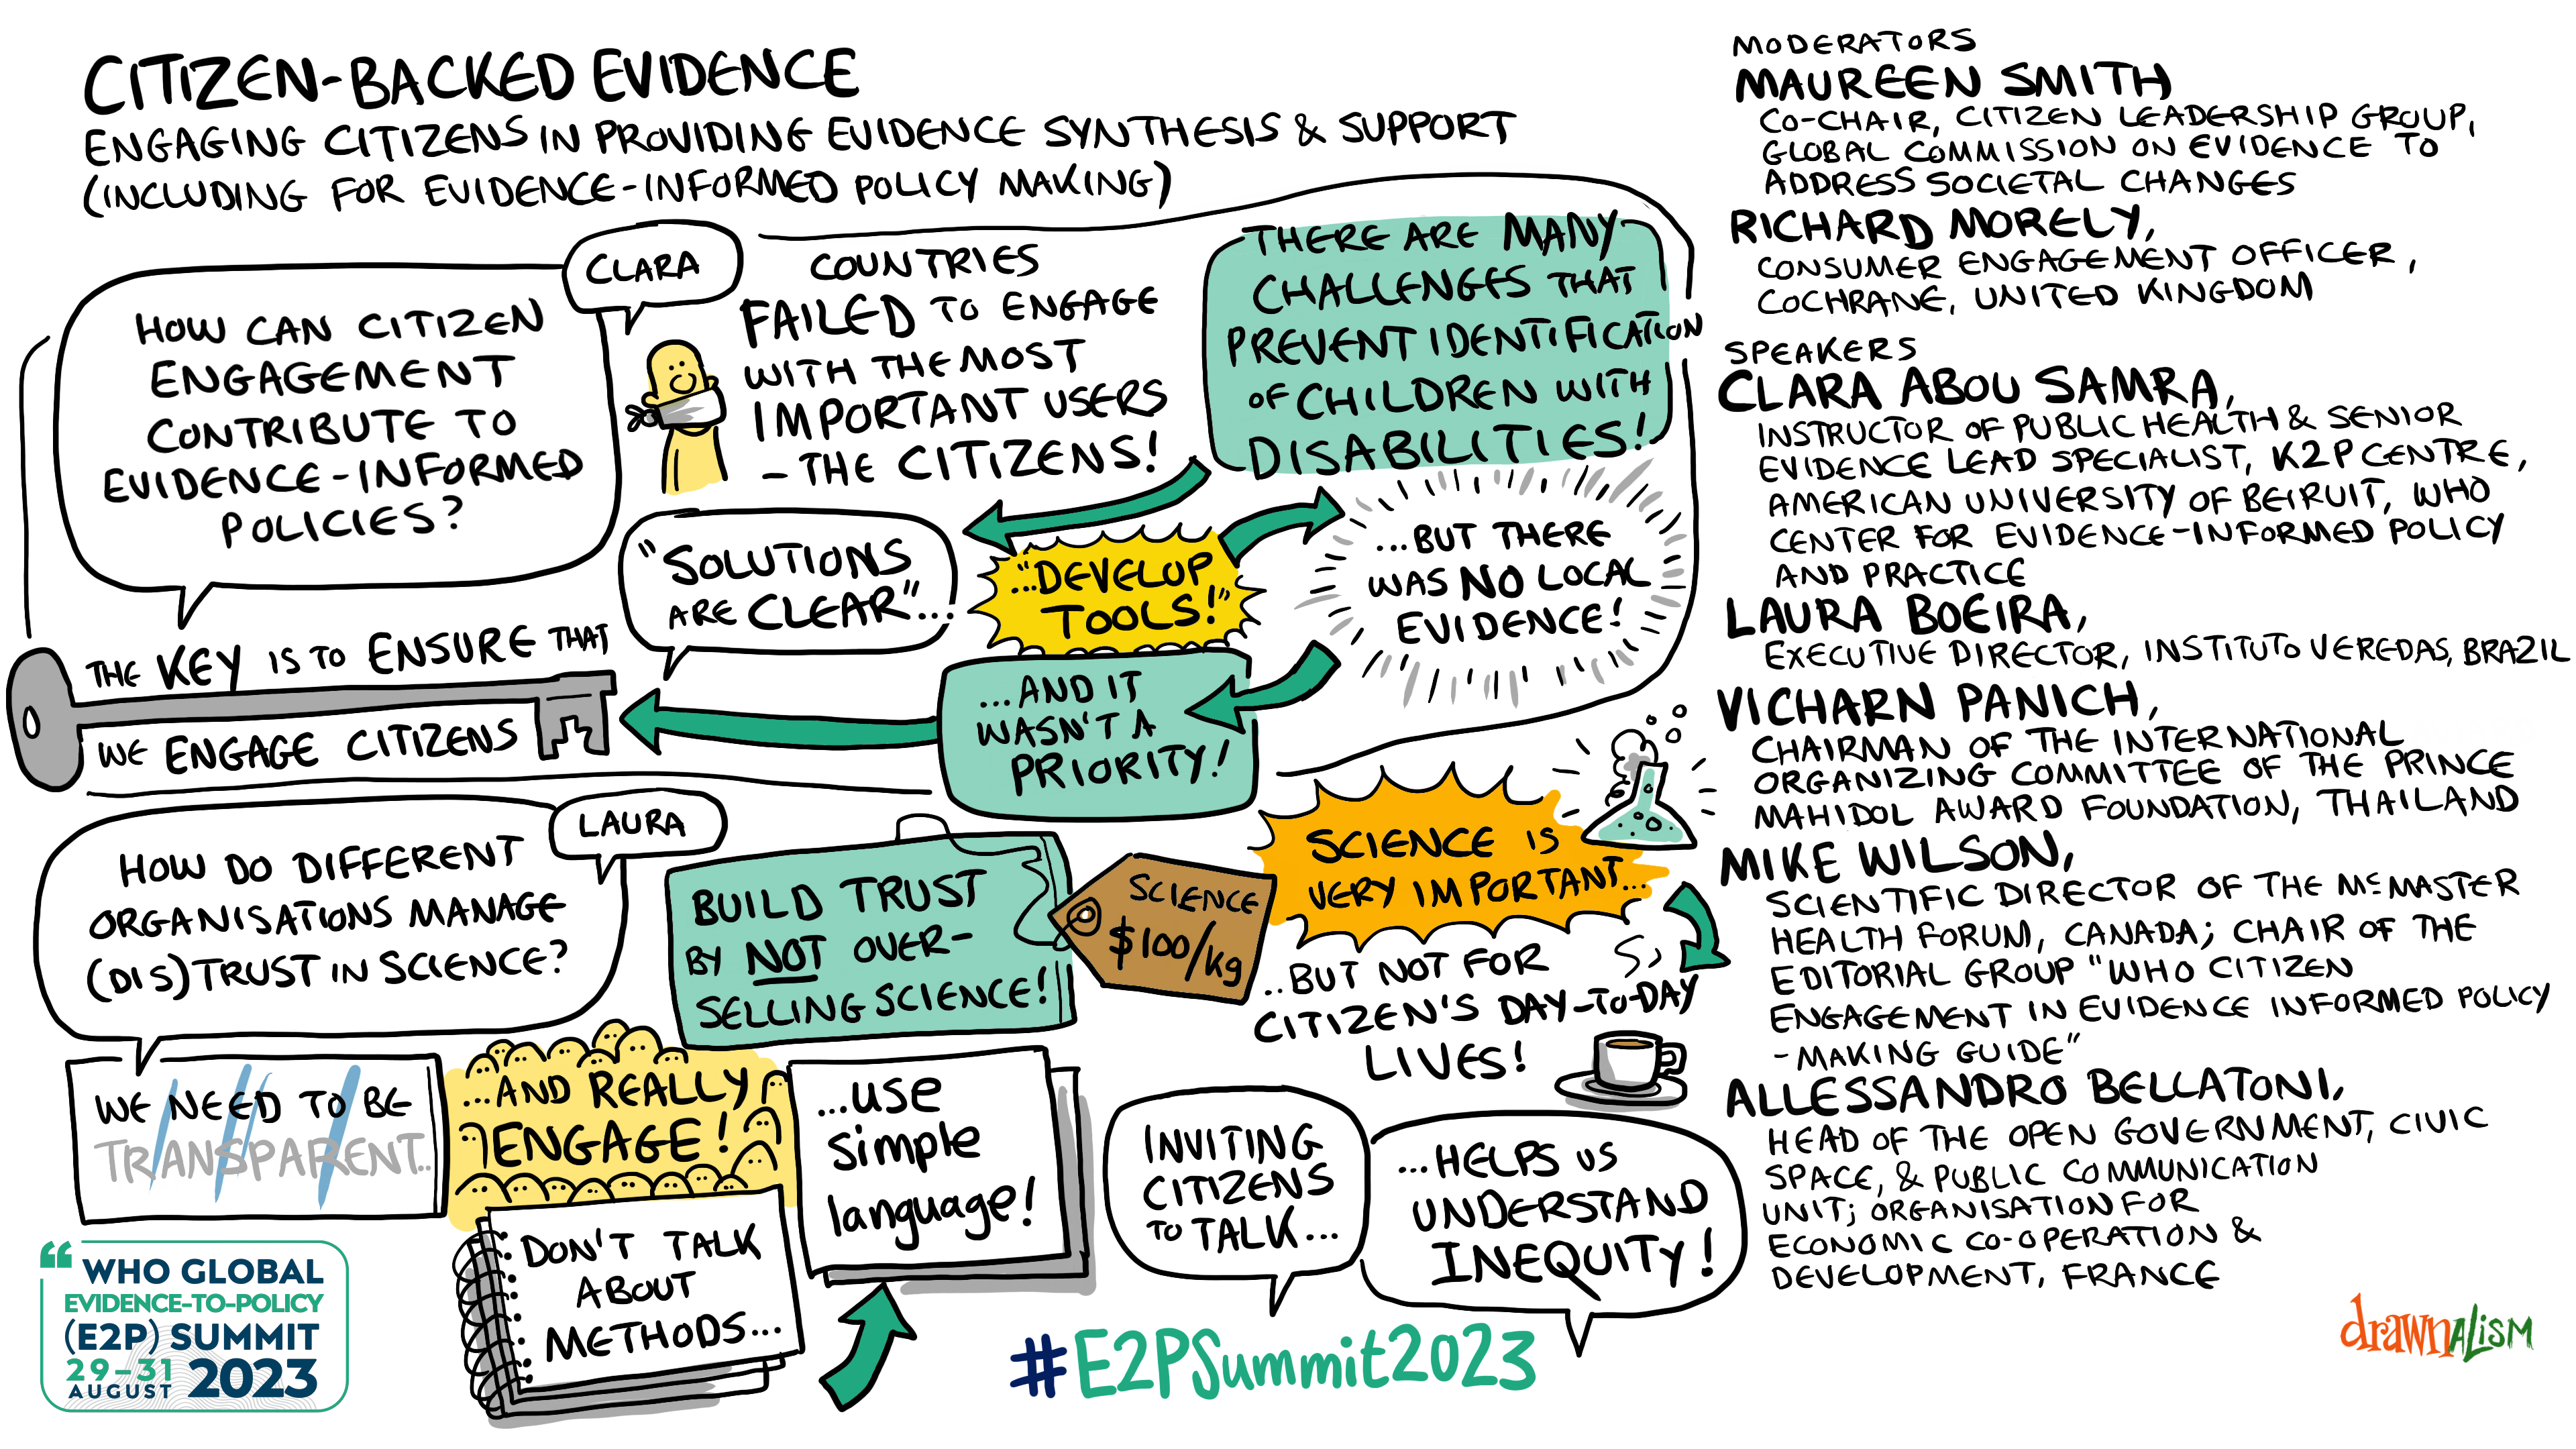 CITIZEN-BACKED EVIDENCE
ENGAGING CITIZENS IN PROVIDING EVIDENCE SYNTHESIS & SUPPORT
(INCLUDING FOR EVIDENCE-INFORMED POLICY MAKING)
CLARA
HOW CAN CITIZEN
ENGAGEMENT
CONTRIBUTE TO
EVIDENCE-INFORMED
POLICIES?
COUNTRIES
FAILED TO ENGAGE
WITH THE MOST
IMPORTANT USERS
- THE CITIZENS!
THERE ARE MANY
CHALLENGES THAT
PREVENT IDENTIFICATION
OF CHILDREN WITH
DISABILITIES!
"SOLUTIONS
ARE CLEAR"...
"...DEVELOP
TOOLS!"
...BUT THERE
WAS NO LOCAL
EVIDENCE!
...AND IT
WASN'T A
PRIORITY!
THE KEY IS TO ENSURE THAT
WE ENGAGE CITIZENS
LAURA
HOW DO DIFFERENT
ORGANISATIONS MANAGE
(DIS)TRUST IN SCIENCE?
WE NEED TO BE
TRANSPARENT...
...AND REALLY
ENGAGE!
DON'T TALK
ABOUT
METHODS...
...use
simple
language!
BUILD TRUST
BY NOT OVER-
SELLING SCIENCE!
SCIENCE
$100/kg
SCIENCE IS
VERY IMPORTANT...
...BUT NOT FOR
CITIZEN'S DAY-TO-DAY
LIVES!
INVITING
CITIZENS
TO TALK...
...HELPS US
UNDERSTAND
INEQUITY!
MODERATORS
MAUREEN SMITH
CO-CHAIR, CITIZEN LEADERSHIP GROUP,
GLOBAL COMMISSION ON EVIDENCE TO
ADDRESS SOCIETAL CHANGES
RICHARD MORELY,
CONSUMER ENGAGEMENT OFFICER,
COCHRANE, UNITED KINGDOM
SPEAKERS
CLARA ABOU SAMRA,
INSTRUCTOR OF PUBLIC HEALTH & SENIOR
EVIDENCE LEAD SPECIALIST, K2P CENTRE,
AMERICAN UNIVERSITY OF BEIRUIT, WHO
CENTER FOR EVIDENCE-INFORMED POLICY
AND PRACTICE
LAURA BOEIRA,
EXECUTIVE DIRECTOR, INSTITUTO VEREDAS, BRAZIL
VICHARN PANICH,
CHAIRMAN OF THE INTERNATIONAL
ORGANIZING COMMITTEE OF THE PRINCE
MAHIDOL AWARD FOUNDATION, THAILAND
MIKE WILSON,
SCIENTIFIC DIRECTOR OF THE McMASTER
HEALTH FORUM, CANADA; CHAIR OF THE
EDITORIAL GROUP "WHO CITIZEN
ENGAGEMENT IN EVIDENCE INFORMED POLICY
-MAKING GUIDE"
ALLESSANDRO BELLATONI,
HEAD OF THE OPEN GOVERNMENT, CIVIC
SPACE, & PUBLIC COMMUNICATION
UNIT; ORGANISATION FOR
ECONOMIC CO-OPERATION &
DEVELOPMENT, FRANCE
“ WHO GLOBAL
EVIDENCE-TO-POLICY
(E2P) SUMMIT
29-31
AUGUST 2023
#E2PSummit2023
drawnALiSM